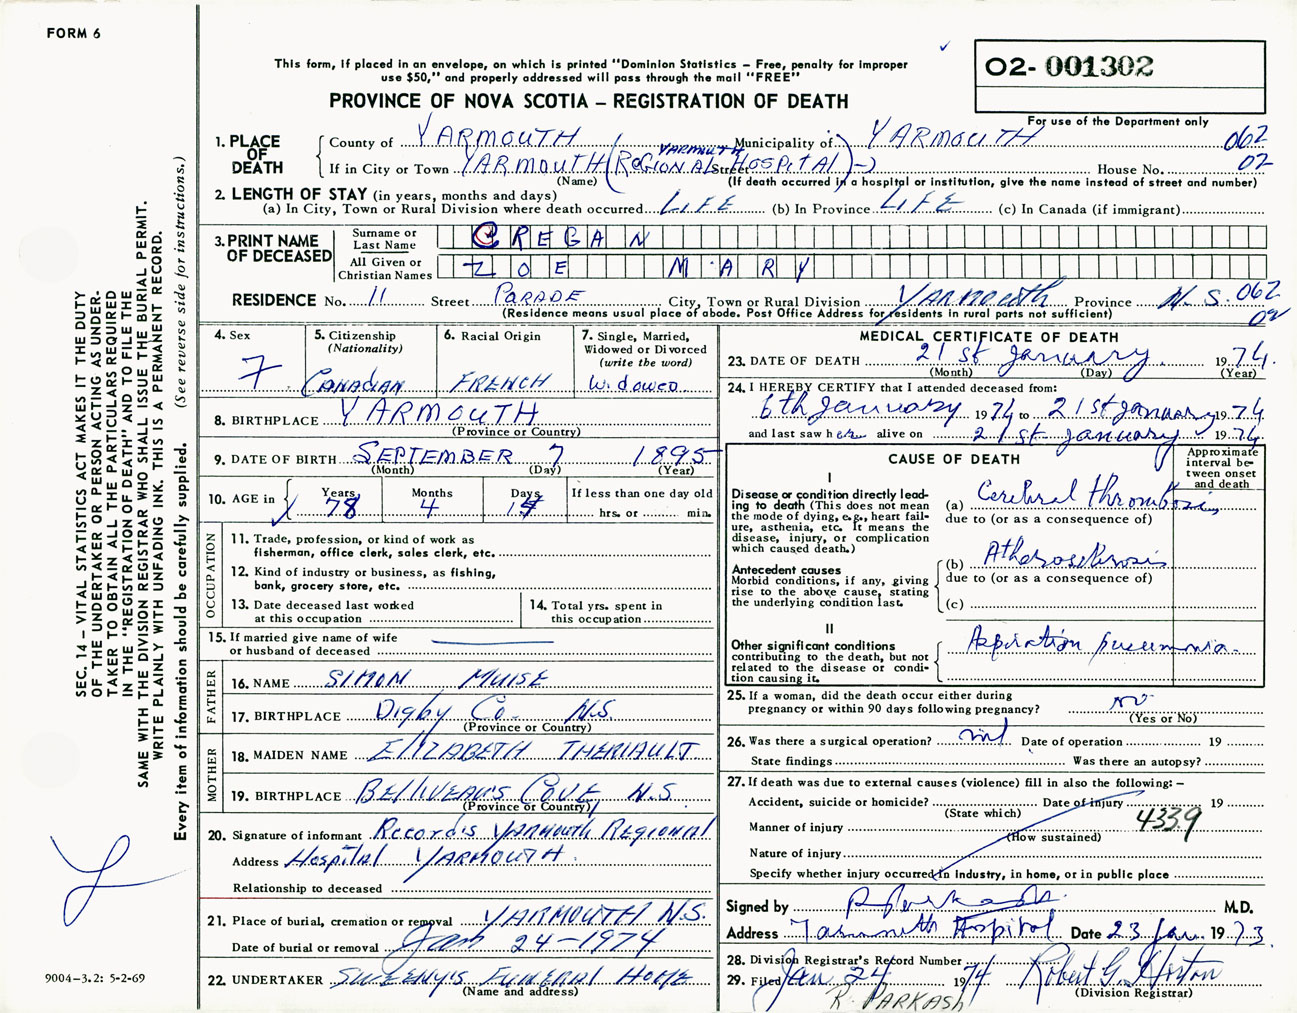 FORM 6
This form, if placed in an envelope, on which is printed "Dominion Statistics – Free, penalty for improper
use $50," and properly addressed will pass through the mail "FREE"
PROVINCE OF NOVA SCOTIA – REGISTRATION OF DEATH
O2- 001302
For use of the Department only
1. PLACE OF DEATH
County of YARMOUTH Municipality of YARMOUTH 062
If in City or Town YARMOUTH (REGIONAL Street HOSPITAL) House No. 02
YARMOUTH
(Name) (If death occurred in a hospital or institution, give the name instead of street and number)
2. LENGTH OF STAY (in years, months and days)
(a) In City, Town or Rural Division where death occurred LIFE (b) In Province LIFE (c) In Canada (if immigrant)
3. PRINT NAME OF DECEASED
Surname or Last Name CREGAN
All Given or Christian Names ZOE MARY
RESIDENCE No. 11 Street PARADE City, Town or Rural Division YARMOUTH Province N.S. 062
02
(Residence means usual place of abode. Post Office Address for residents in rural parts not sufficient)
4. Sex F
5. Citizenship (Nationality) CANADIAN
6. Racial Origin FRENCH
7. Single, Married, Widowed or Divorced (write the word) Widowed
8. BIRTHPLACE YARMOUTH
(Province or Country)
9. DATE OF BIRTH SEPTEMBER 7 1895
(Month) (Day) (Year)
10. AGE in Years 78 Months 4 Days If less than one day old
hrs. or min.
OCCUPATION
11. Trade, profession, or kind of work as
fisherman, office clerk, sales clerk, etc.
12. Kind of industry or business, as fishing,
bank, grocery store, etc.
13. Date deceased last worked
at this occupation
14. Total yrs. spent in
this occupation
15. If married give name of wife
or husband of deceased
FATHER
16. NAME SIMON MUISE
17. BIRTHPLACE Digby Co. N.S.
(Province or Country)
MOTHER
18. MAIDEN NAME ELIZABETH THERIAULT
19. BIRTHPLACE BELLIVEAU'S COVE N.S
(Province or Country)
20. Signature of informant Records YARMOUTH REGIONAL
Address Hospital YARMOUTH.
Relationship to deceased
21. Place of burial, cremation or removal YARMOUTH N.S.
Date of burial or removal Jan 24-1974
22. UNDERTAKER SWEENY'S FUNERAL HOME
(Name and address)
MEDICAL CERTIFICATE OF DEATH
23. DATE OF DEATH 21st January 1974.
(Month) (Day) (Year)
24. I HEREBY CERTIFY that I attended deceased from:
6th January 1974 to 21st January 1974
and last saw her alive on 21st January 1974
CAUSE OF DEATH
Approximate
interval be-
tween onset
and death
I
Disease or condition directly lead-
ing to death (This does not mean
the mode of dying, e.g., heart fail-
ure, asthenia, etc. It means the
disease, injury, or complication
which caused death.)
(a) Cerebral thrombosis
due to (or as a consequence of)
Antecedent causes
Morbid conditions, if any, giving
rise to the above cause, stating
the underlying condition last.
(b) Atherosclerosis
due to (or as a consequence of)
(c)
II
Other significant conditions
contributing to the death, but not
related to the disease or condi-
tion causing it.
Aspiration pneumonia
25. If a woman, did the death occur either during
pregnancy or within 90 days following pregnancy? no
(Yes or No)
26. Was there a surgical operation? nil Date of operation 19
State findings Was there an autopsy?
27. If death was due to external causes (violence) fill in also the following: –
Accident, suicide or homicide? Date of injury 19
(State which)
Manner of injury 4339
(How sustained)
Nature of injury
Specify whether injury occurred in industry, in home, or in public place
Signed by R Parkash M.D.
Address Yarmouth Hospital Date 23 Jan. 1973
28. Division Registrar's Record Number
29. Filed Jan 24 1974 Robert G. Horton
(Division Registrar)
R. PARKASH
SEC. 14 – VITAL STATISTICS ACT MAKES IT THE DUTY
OF THE UNDERTAKER OR PERSON ACTING AS UNDER-
TAKER TO OBTAIN ALL THE PARTICULARS REQUIRED
IN THE "REGISTRATION OF DEATH" AND TO FILE THE
SAME WITH THE DIVISION REGISTRAR WHO SHALL ISSUE THE BURIAL PERMIT.
WRITE PLAINLY WITH UNFADING INK. THIS IS A PERMANENT RECORD.
Every item of information should be carefully supplied. (See reverse side for instructions.)
9004-3.2: 5-2-69